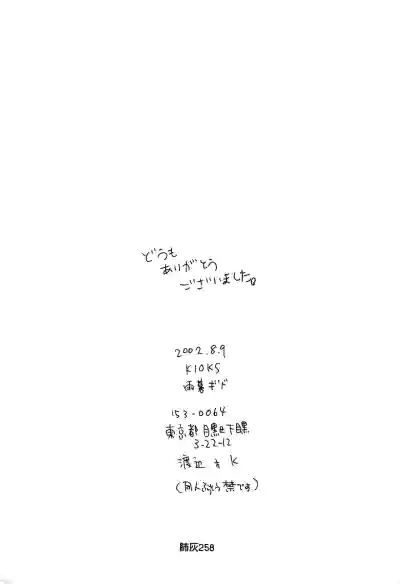 どうも
ありがとう
ございました。
2002.8.9
KIOKS
雨暮ギド
153-0064
東京都目黒区下目黒
3-22-12
渡辺方 K
(同人 禁です)
肺灰258